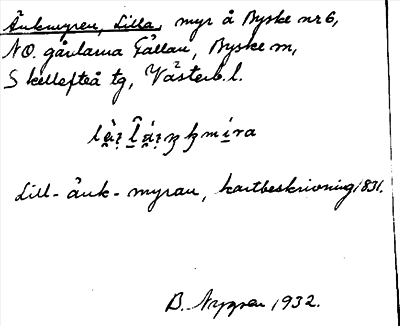 Änkmyren, Lilla, myr å Byske nr 6,
NO. gårdarna Gållan, Byske sn,
Skellefteå tg, Västerb. l.
Lill-änk-myran, kartbeskrivning 1831.
B. Nygren 1932.